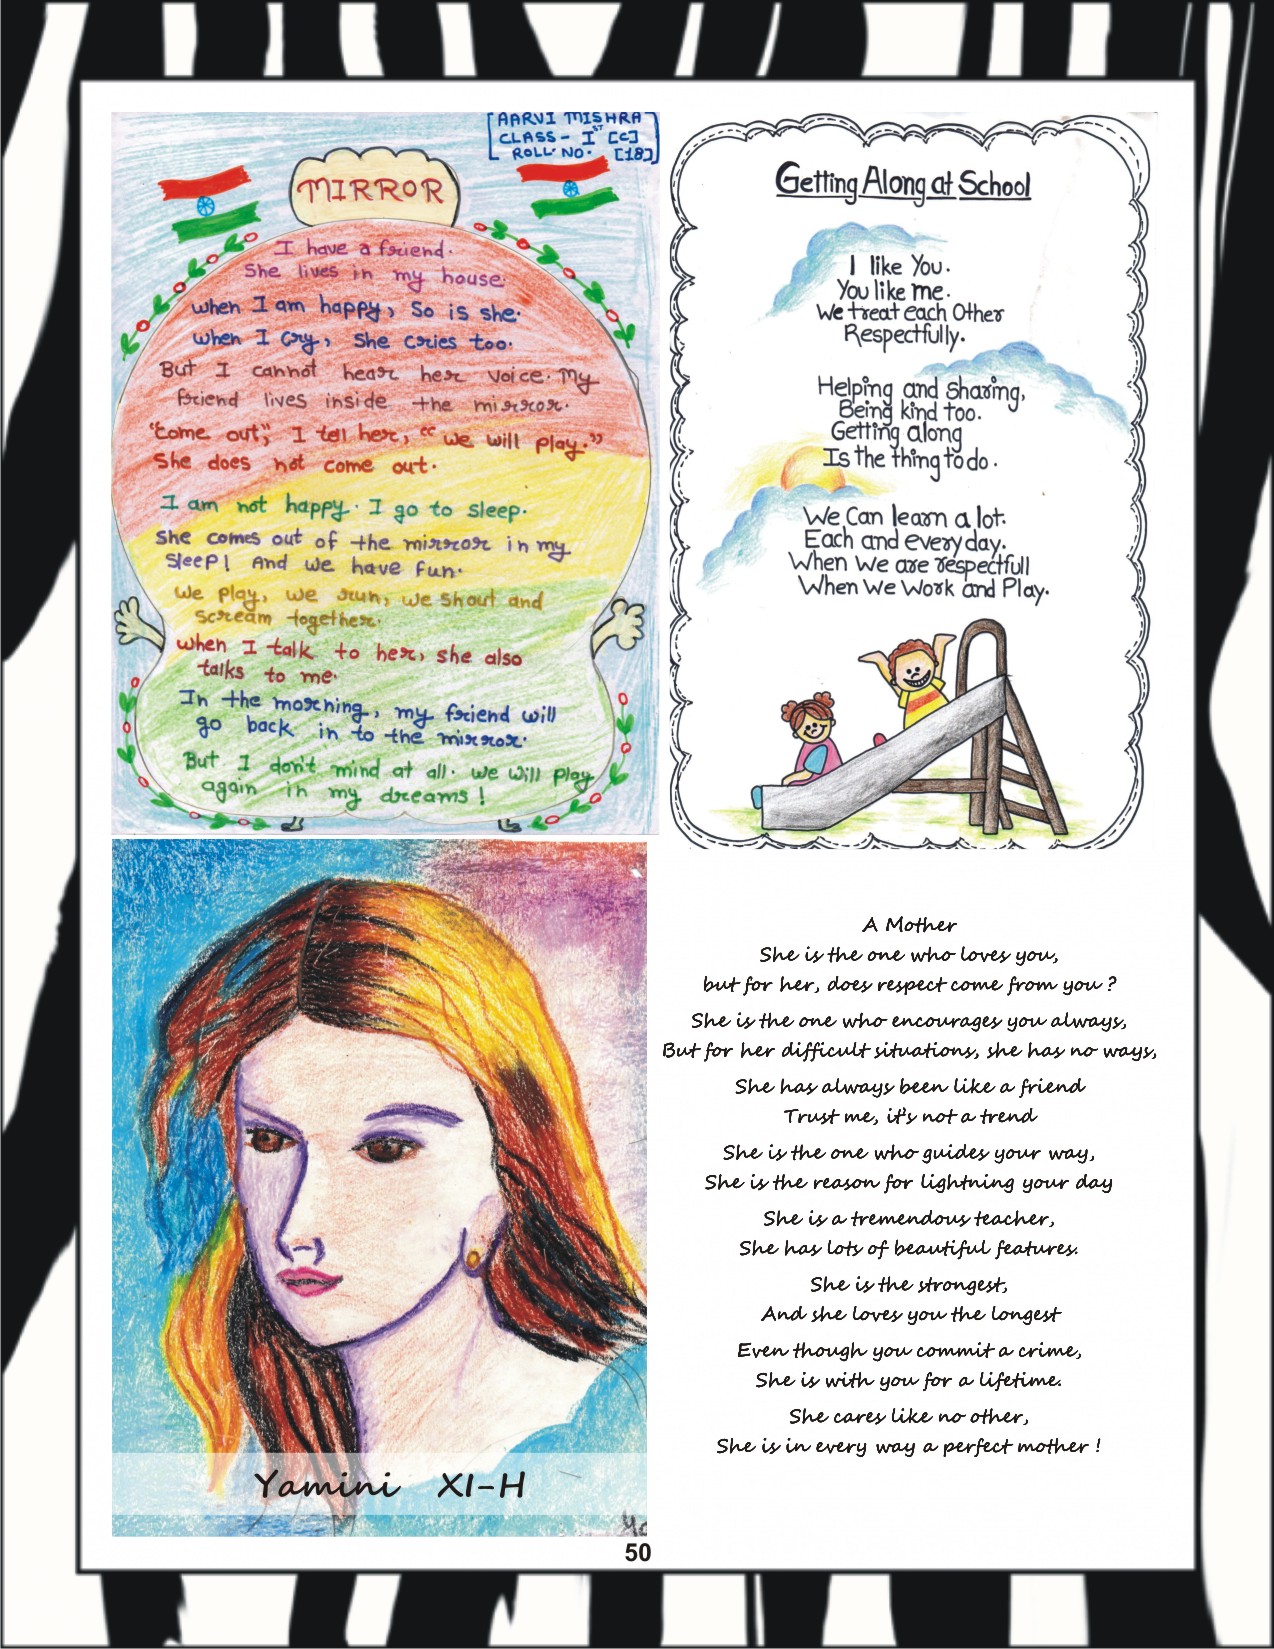 [AARVI MISHRA
CLASS - I ST [C]
ROLL NO. [18]]
MIRROR
I have a friend.
She lives in my house.
when I am happy, So is she.
when I Cry, She cries too.
But I cannot hear her voice. My
friend lives inside the mirror.
"Come out", I tell her, "we will play."
She does not come out.
I am not happy. I go to sleep.
She comes out of the mirror in my
sleep! And we have fun.
we play, we run, we shout and
scream together.
when I talk to her, she also
talks to me.
In the morning, my friend will
go back in to the mirror.
But I don't mind at all. we will play
again in my dreams!
Getting Along at School
I like You.
You like me.
We treat each Other
Respectfully.
Helping and Sharing,
Being kind too.
Getting along
Is the thing to do.
We Can learn a lot.
Each and every day.
When We are respectfull
When We Work and Play.
Yamini XI-H
A Mother
She is the one who loves you,
but for her, does respect come from you ?
She is the one who encourages you always,
But for her difficult situations, she has no ways,
She has always been like a friend
Trust me, it's not a trend
She is the one who guides your way,
She is the reason for lightning your day
She is a tremendous teacher,
She has lots of beautiful features.
She is the strongest,
And she loves you the longest
Even though you commit a crime,
She is with you for a lifetime.
She cares like no other,
She is in every way a perfect mother !
50